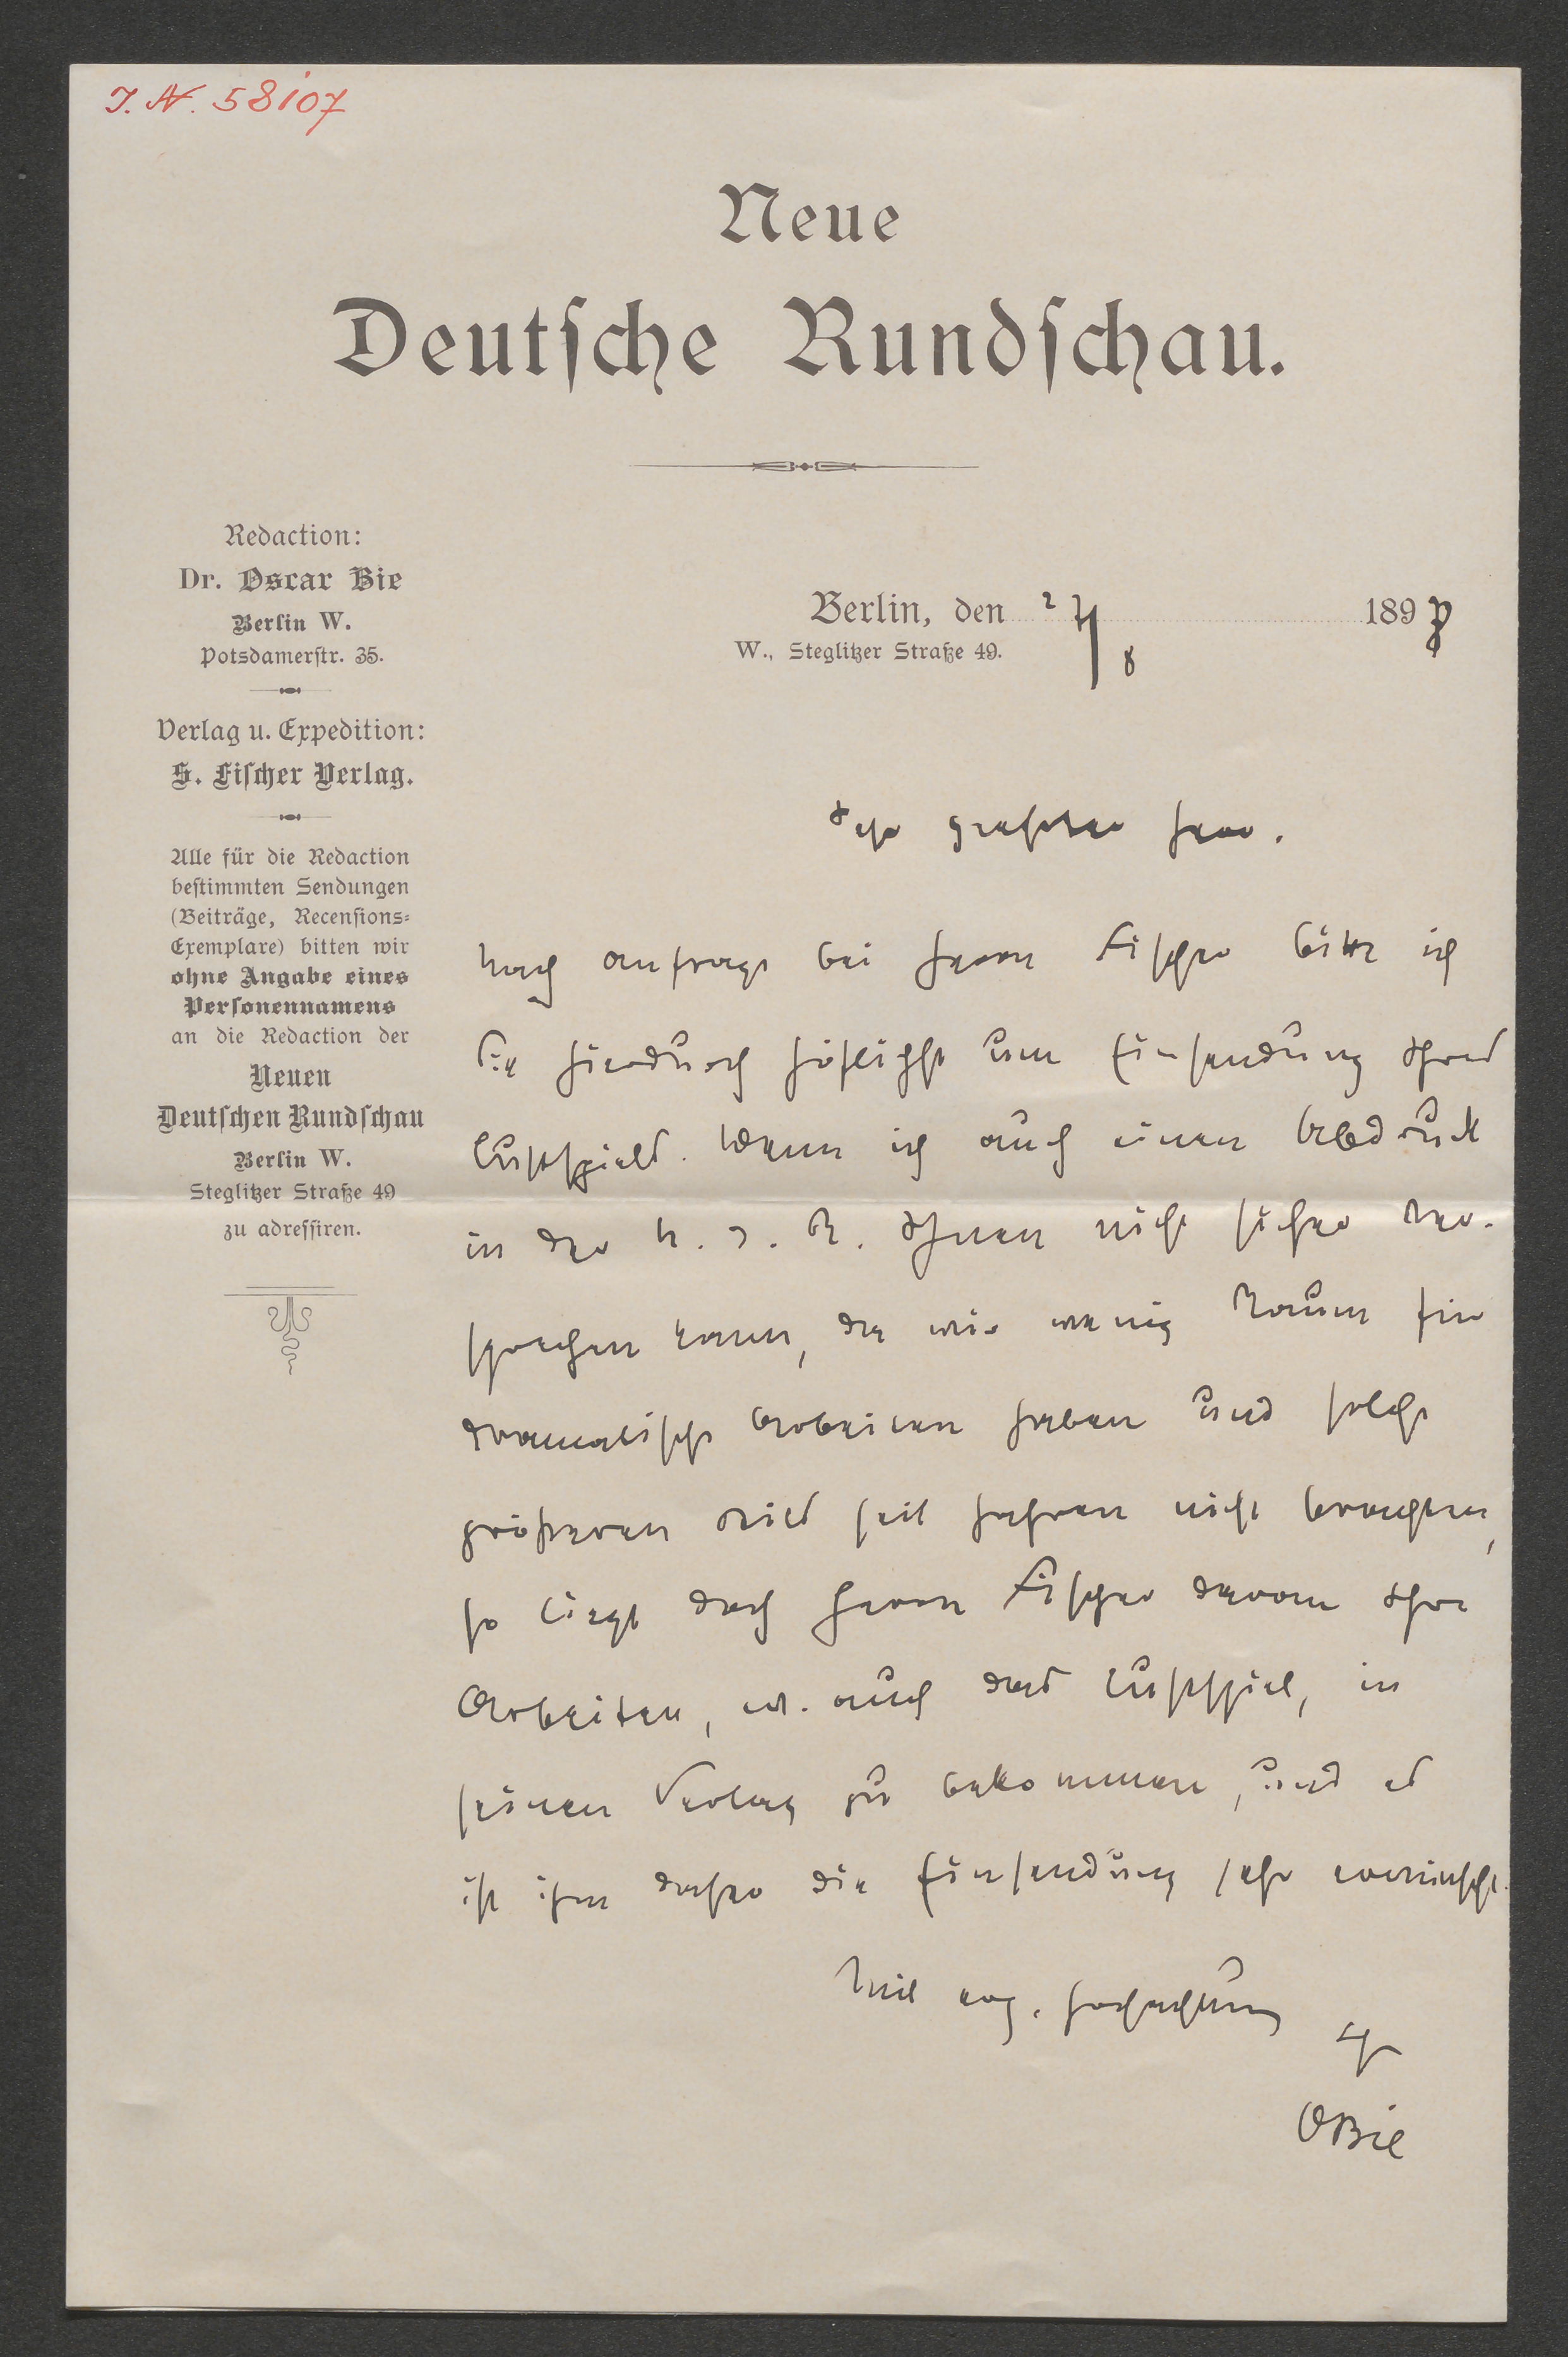 I. N. 58107
Neue
Deutſche Rundſchau.
Redaction:
Dr. Oscar Bie
Berlin W.
Potsdamerſtr. 35.
Verlag u. Expedition:
S. Fiſcher Verlag.
Alle für die Redaction
beſtimmten Sendungen
(Beiträge, Recenſions-
Exemplare) bitten wir
ohne Angabe eines
Perſonennamens
an die Redaction der
Neuen
Deutſchen Rundſchau
Berlin W.
Steglitzer Straße 49
zu adreſſiren.
Berlin, den 27/8 1897
W., Steglitzer Straße 49.
Sehr geehrter Herr.
Nach Anfrage bei Herrn Fischer bitte ich
Sie hierdurch höflichst um Einsendung Ihres
Lustspiels. Wenn ich auch einen Abdruck
in der N. D. R. Ihnen nicht sicher ver-
sprechen kann, da wir wenig Raum für
dramatische Arbeiten haben und solche
größeren Stils seit Jahren nicht brachten,
so liegt doch Herrn Fischer daran Ihre
Arbeiten, so auch das Lustspiel, in
seinen Verlag zu bekommen, und es
ist ihm daher die Einsendung sehr erwünscht.
Mit erg. Hochachtung
Ihr
OBie